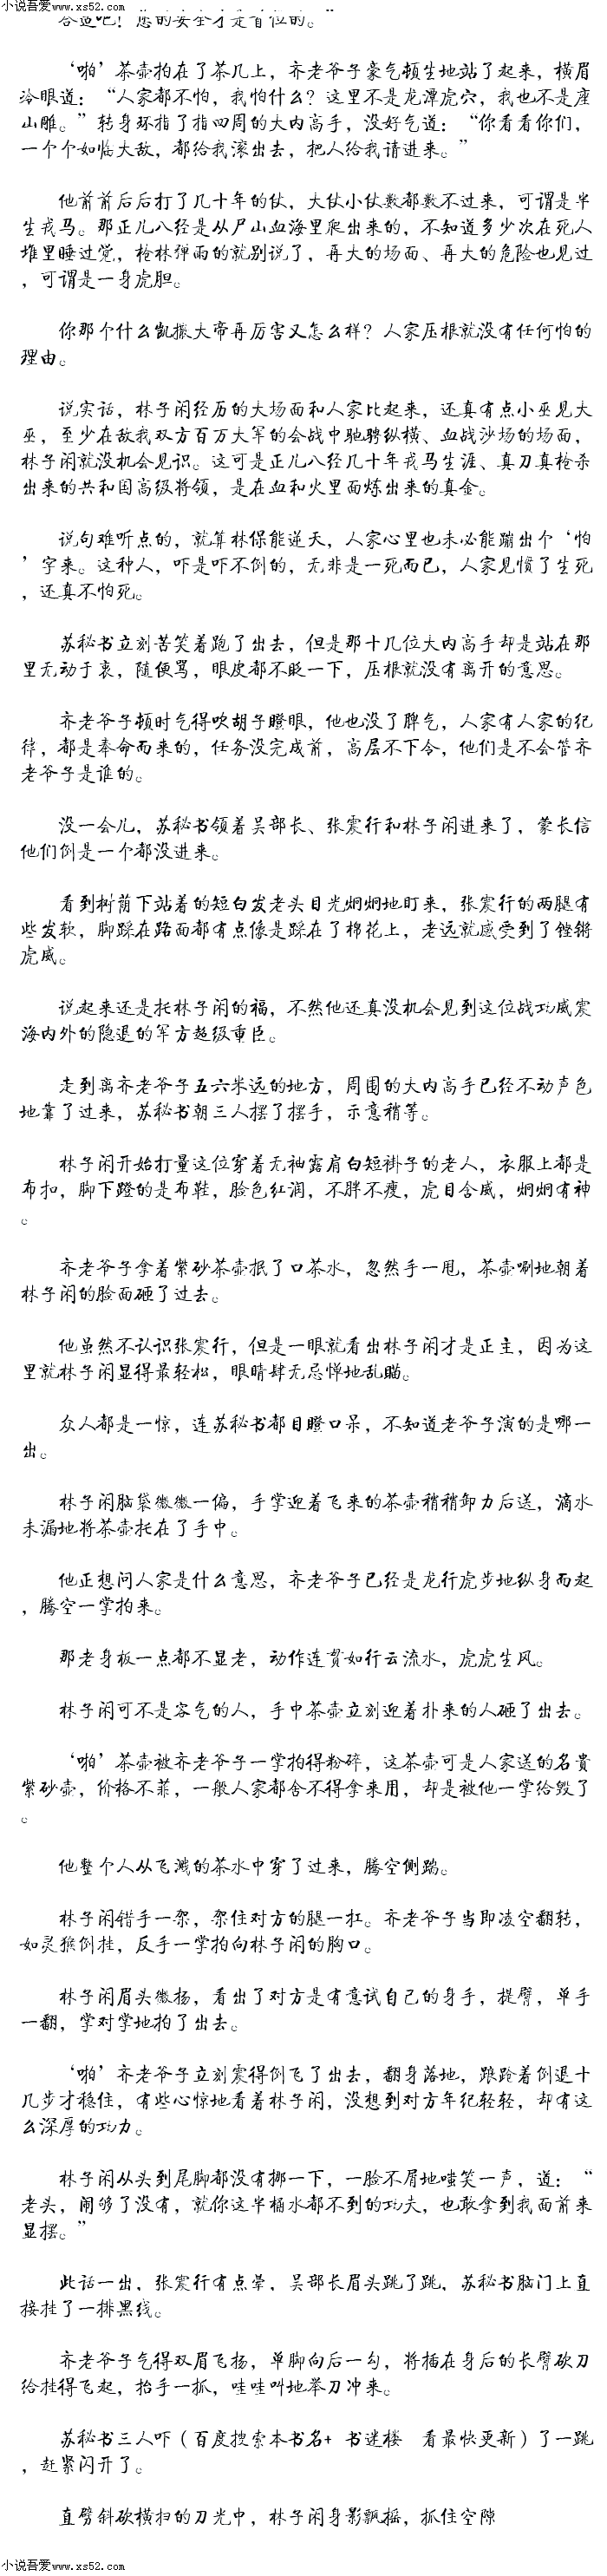 小说吾爱www.xs52.com
合适吧！您的安全才是首位的。
‘啪’茶壶拍在了茶几上，齐老爷子豪气顿生地站了起来，横眉
冷眼道：“人家都不怕，我怕什么？这里不是龙潭虎穴，我也不是座
山雕。”转身环指了指四周的大内高手，没好气道：“你看看你们，
一个个如临大敌，都给我滚出去，把人给我请进来。”
他前前后后打了几十年的仗，大仗小仗数都数不过来，可谓是半
生戎马。那正儿八经是从尸山血海里爬出来的，不知道多少次在死人
堆里睡过觉，枪林弹雨的就别说了，再大的场面、再大的危险也见过
，可谓是一身虎胆。
你那个什么凯撒大帝再厉害又怎么样？人家压根就没有任何怕的
理由。
说实话，林子闲经历的大场面和人家比起来，还真有点小巫见大
巫，至少在敌我双方百万大军的会战中驰骋纵横、血战沙场的场面，
林子闲就没机会见识。这可是正儿八经几十年戎马生涯、真刀真枪杀
出来的共和国高级将领，是在血和火里面炼出来的真金。
说句难听点的，就算林保能逆天，人家心里也未必能蹦出个‘怕
’字来。这种人，吓是吓不倒的，无非是一死而已，人家见惯了生死
，还真不怕死。
苏秘书立刻苦笑着跑了出去，但是那十几位大内高手却是站在那
里无动于衷，随便骂，眼皮都不眨一下，压根就没有离开的意思。
齐老爷子顿时气得吹胡子瞪眼，他也没了脾气，人家有人家的纪
律，都是奉命而来的，任务没完成前，高层不下令，他们是不会管齐
老爷子是谁的。
没一会儿，苏秘书领着吴部长、张震行和林子闲进来了，蒙长信
他们倒是一个都没进来。
看到树荫下站着的短白发老头目光炯炯地盯来，张震行的两腿有
些发软，脚踩在路面都有点像是踩在了棉花上，老远就感受到了铿锵
虎威。
说起来还是托林子闲的福，不然他还真没机会见到这位战功威震
海内外的隐退的军方超级重臣。
走到离齐老爷子五六米远的地方，周围的大内高手已经不动声色
地靠了过来，苏秘书朝三人摆了摆手，示意稍等。
林子闲开始打量这位穿着无袖露肩白短褂子的老人，衣服上都是
布扣，脚下蹬的是布鞋，脸色红润，不胖不瘦，虎目含威，炯炯有神
。
齐老爷子拿着紫砂茶壶抿了口茶水，忽然手一甩，茶壶唰地朝着
林子闲的脸面砸了过去。
他虽然不认识张震行，但是一眼就看出林子闲才是正主，因为这
里就林子闲显得最轻松，眼睛肆无忌惮地乱瞄。
众人都是一惊，连苏秘书都目瞪口呆，不知道老爷子演的是哪一
出。
林子闲脑袋微微一偏，手掌迎着飞来的茶壶稍稍卸力后送，滴水
未漏地将茶壶托在了手中。
他正想问人家是什么意思，齐老爷子已经是龙行虎步地纵身而起
，腾空一掌拍来。
那老身板一点都不显老，动作连贯如行云流水，虎虎生风。
林子闲可不是客气的人，手中茶壶立刻迎着扑来的人砸了出去。
‘啪’茶壶被齐老爷子一掌拍得粉碎，这茶壶可是人家送的名贵
紫砂壶，价格不菲，一般人家都舍不得拿来用，却是被他一掌给毁了
。
他整个人从飞溅的茶水中穿了过来，腾空侧踹。
林子闲错手一架，架住对方的腿一扛。齐老爷子当即凌空翻转，
如灵猴倒挂，反手一掌拍向林子闲的胸口。
林子闲眉头微扬，看出了对方是有意试自己的身手，提臂，单手
一翻，掌对掌地拍了出去。
‘啪’齐老爷子立刻震得倒飞了出去，翻身落地，踉跄着倒退十
几步才稳住，有些心惊地看着林子闲，没想到对方年纪轻轻，却有这
么深厚的功力。
林子闲从头到尾脚都没有挪一下，一脸不屑地嗤笑一声，道：“
老头，闹够了没有，就你这半桶水都不到的功夫，也敢拿到我面前来
显摆。”
此话一出，张震行有点晕，吴部长眉头跳了跳，苏秘书脑门上直
接挂了一排黑线。
齐老爷子气得双眉飞扬，单脚向后一勾，将插在身后的长臂砍刀
给挂得飞起，抬手一抓，哇哇叫地举刀冲来。
苏秘书三人吓（百度搜索本书名+ 书迷楼 看最快更新）了一跳
，赶紧闪开了。
直劈斜砍横扫的刀光中，林子闲身影飘摇，抓住空隙
小说吾爱www.xs52.com